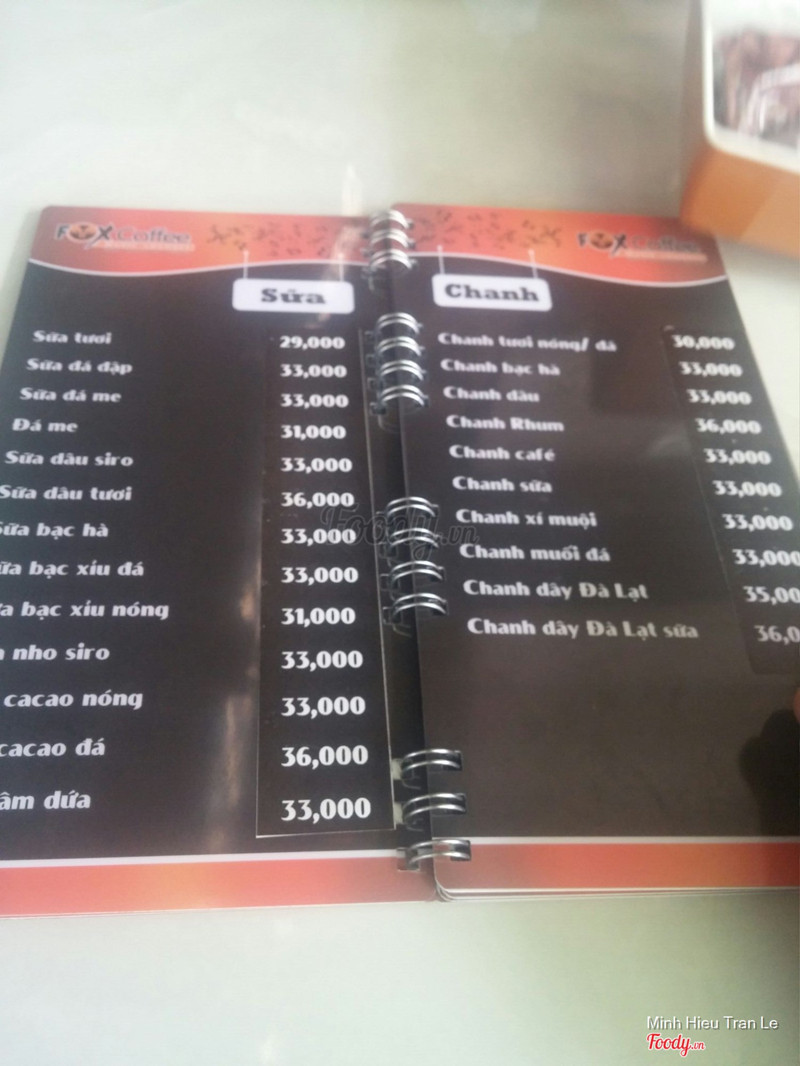 FOX Coffee
Sữa
Sữa tươi 29,000
Sữa đá đập 33,000
Sữa đá me 33,000
Đá me 31,000
Sữa dâu siro 33,000
Sữa dâu tươi 36,000
Sữa bạc hà 33,000
ữa bạc xỉu đá 33,000
a bạc xỉu nóng 31,000
nho siro 33,000
cacao nóng 33,000
cacao đá 36,000
âm dứa 33,000
FOX Coffee
Chanh
Chanh tươi nóng/ đá 30,000
Chanh bạc hà 33,000
Chanh dâu 33,000
Chanh Rhum 36,000
Chanh café 33,000
Chanh sữa 33,000
Chanh xí muội 33,000
Chanh muối đá 33,000
Chanh dây Đà Lạt 35,00
Chanh dây Đà Lạt sữa 36,0
Foody.vn
Minh Hieu Tran Le
Foody.vn